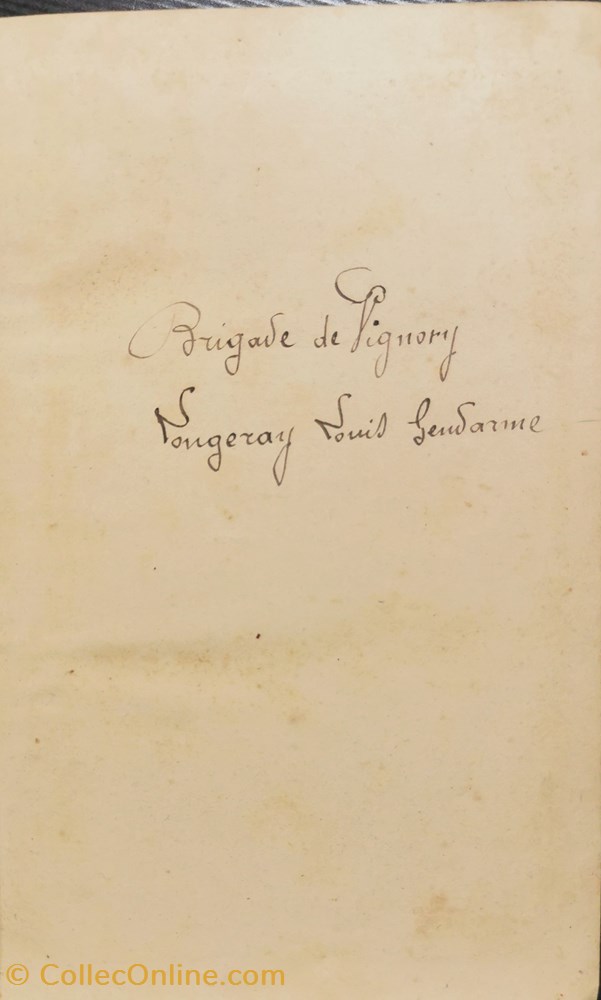 Brigade de Vignory
Longeray Louis Gendarme
© CollecOnline.com